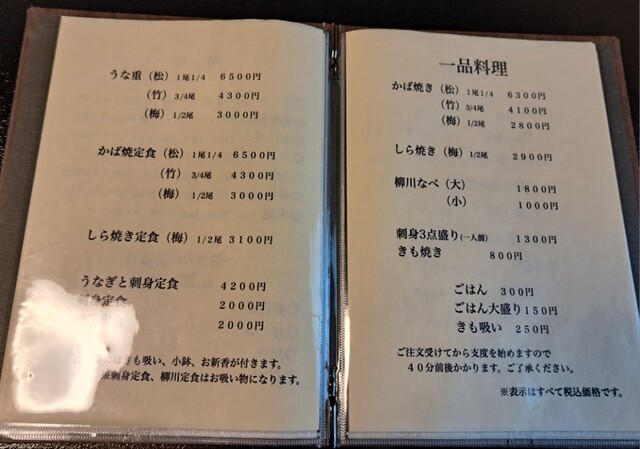 うな重（松）1尾1/4 6500円
（竹）3/4尾 4300円
（梅）1/2尾 3000円
かば焼定食（松）1尾1/4 6500円
（竹）3/4尾 4300円
（梅）1/2尾 3000円
しら焼き定食（梅）1/2尾 3100円
うなぎと刺身定食 4200円
刺身定食 2000円
2000円
はきも吸い、小鉢、お新香が付きます。
※刺身定食、柳川定食はお吸い物になります。
一品料理
かば焼き（松）1尾1/4 6300円
（竹）3/4尾 4100円
（梅）1/2尾 2800円
しら焼き（梅）1/2尾 2900円
柳川なべ（大） 1800円
（小） 1000円
刺身3点盛り(一人前) 1300円
きも焼き 800円
ごはん 300円
ごはん大盛り150円
きも吸い 250円
ご注文受けてから支度を始めますので
40分前後かかります。ご了承ください。
※表示はすべて税込価格です。